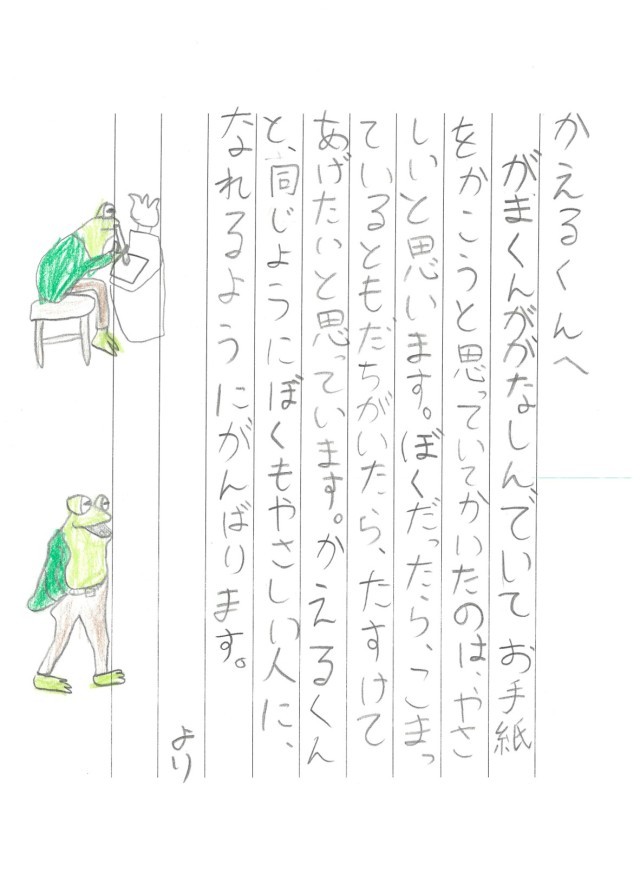 かえるくんへ
がまくんががなしんでいてお手紙
をかこうと思っていてかいたのは、やさ
しいと思います。ぼくだったら、こまっ
ているともだちがいたら、たすけて
あげたいと思っています。かえるくん
と、同じようにぼくもやさしい人に、
なれるようにがんばります。
より